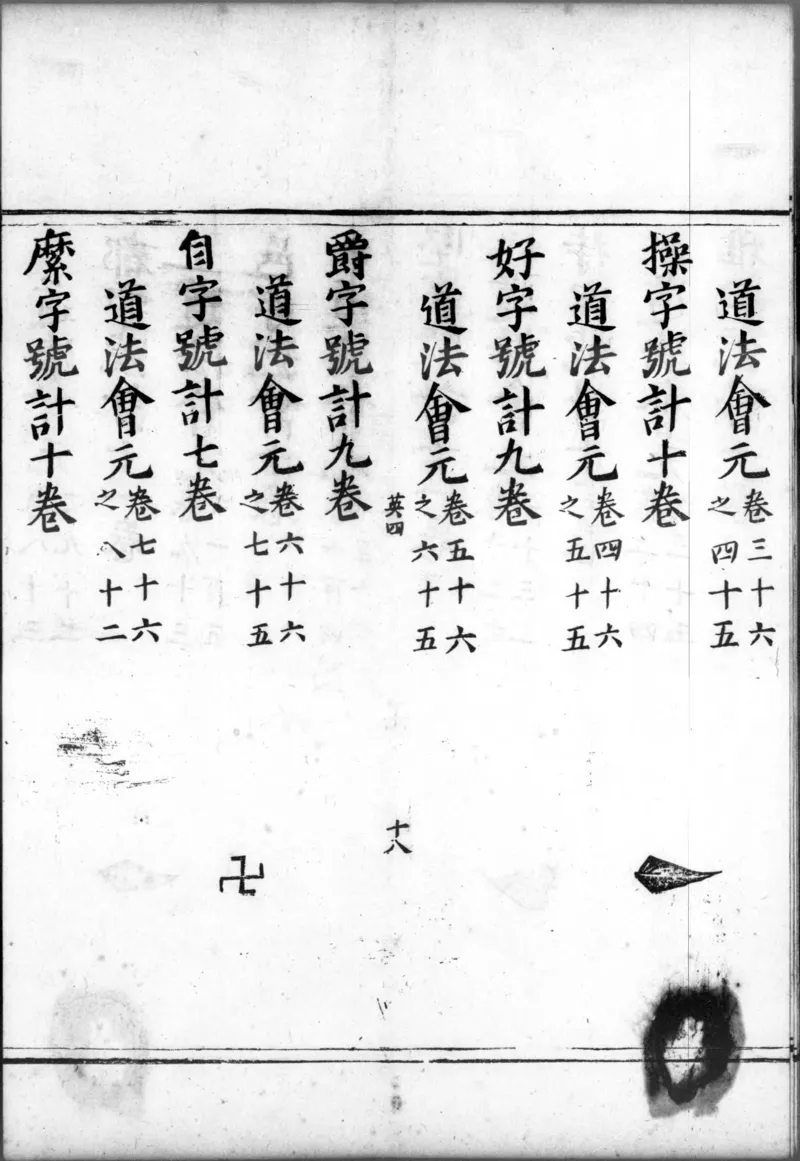 道法會元卷三十六之四十五
操字號計十卷
道法會元卷四十六之五十五
好字號計九卷
道法會元卷五十六之六十五
英四
十八
爵字號計九卷
道法會元卷六十六之七十五
自字號計七卷
道法會元卷七十六之八十二
縻字號計十卷
卍